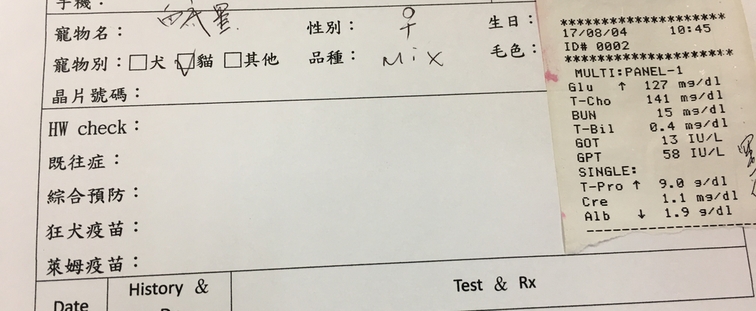 手機：
寵物名： 性別：♀ 生日：
寵物別：□犬 ☑貓 □其他 品種：Mix 毛色：
晶片號碼：
HW check：
既往症：
綜合預防：
狂犬疫苗：
萊姆疫苗：
Date History & Test & Rx
********************
17/08/04 10:45
ID# 0002
********************
MULTI:PANEL-1
Glu ↑ 127 mg/dl
T-Cho 141 mg/dl
BUN 15 mg/dl
T-Bil 0.4 mg/dl
GOT 13 IU/L
GPT 58 IU/L
SINGLE:
T-Pro ↑ 9.0 g/dl
Cre 1.1 mg/dl
Alb ↓ 1.9 g/dl
--------------------